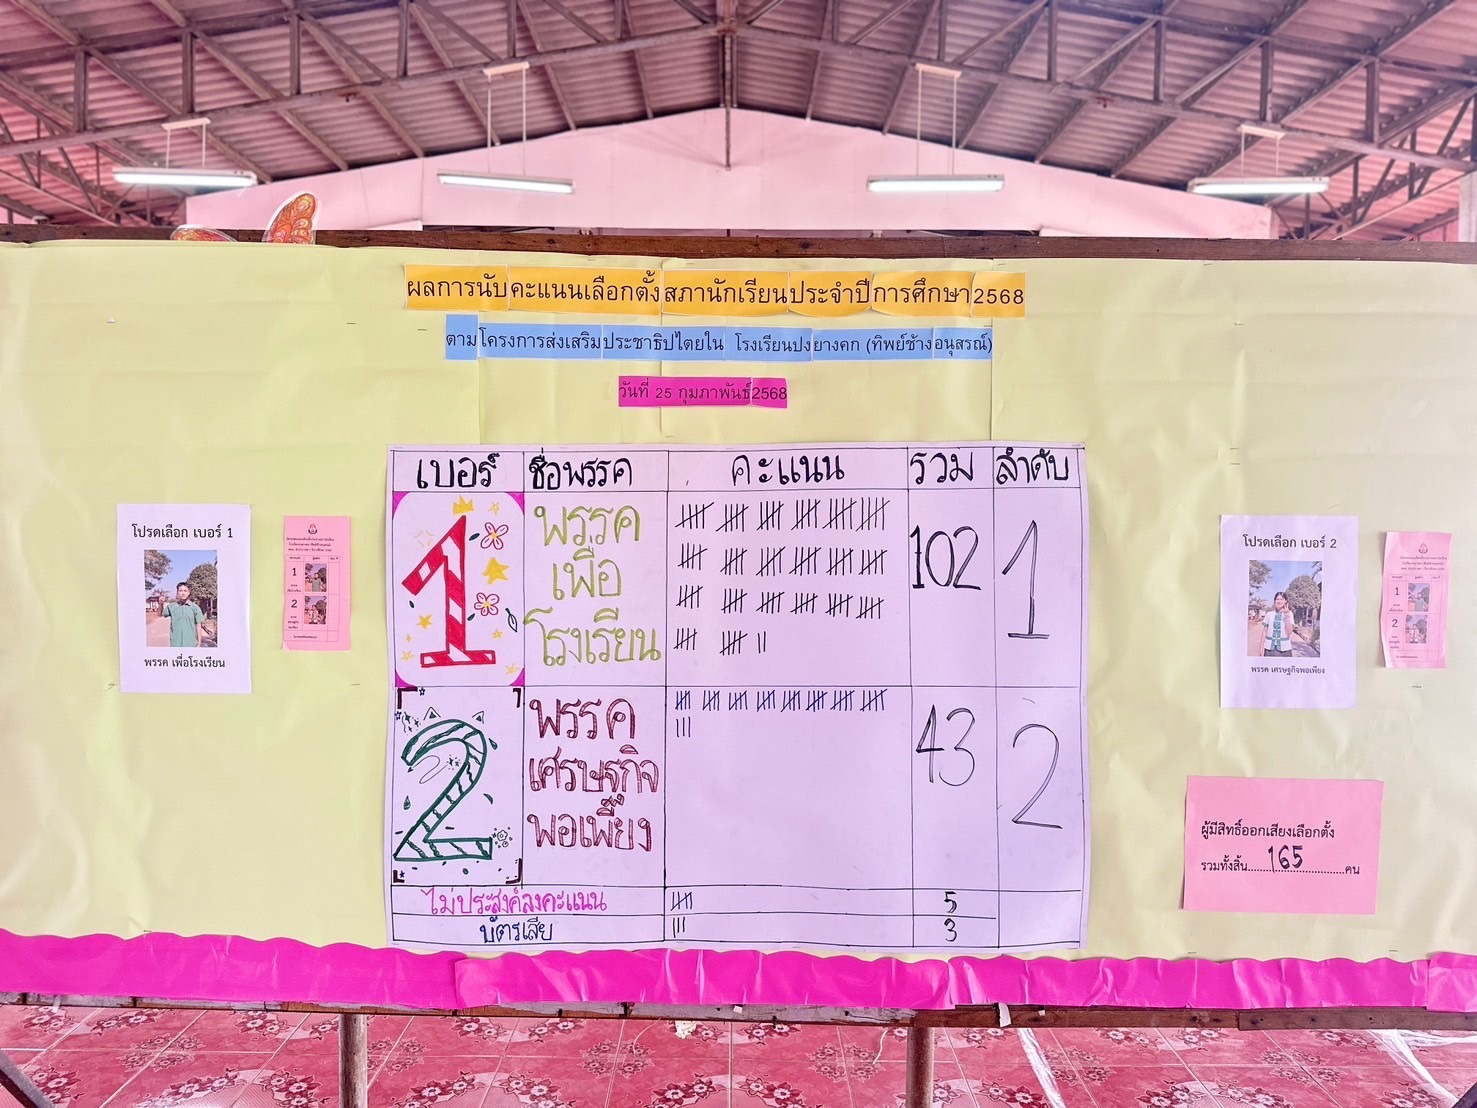 ผลการนับคะแนนเลือกตั้งสภานักเรียนประจำปีการศึกษา2568
ตามโครงการส่งเสริมประชาธิปไตยใน โรงเรียนปงยางคก (ทิพย์ช้างอนุสรณ์)
วันที่ 25 กุมภาพันธ์2568
เบอร์ ชื่อพรรค คะแนน รวม ลำดับ
1 พรรค
เพื่อ
โรงเรียน
102 1
2 พรรค
เศรษฐกิจ
พอเพียง
43 2
ไม่ประสงค์ลงคะแนน 5
บัตรเสีย 3
โปรดเลือก เบอร์ 1
พรรค เพื่อโรงเรียน
1
2
โปรดเลือก เบอร์ 2
พรรค เศรษฐกิจพอเพียง
1
2
ผู้มีสิทธิ์ออกเสียงเลือกตั้ง
รวมทั้งสิ้น.......165.......คน